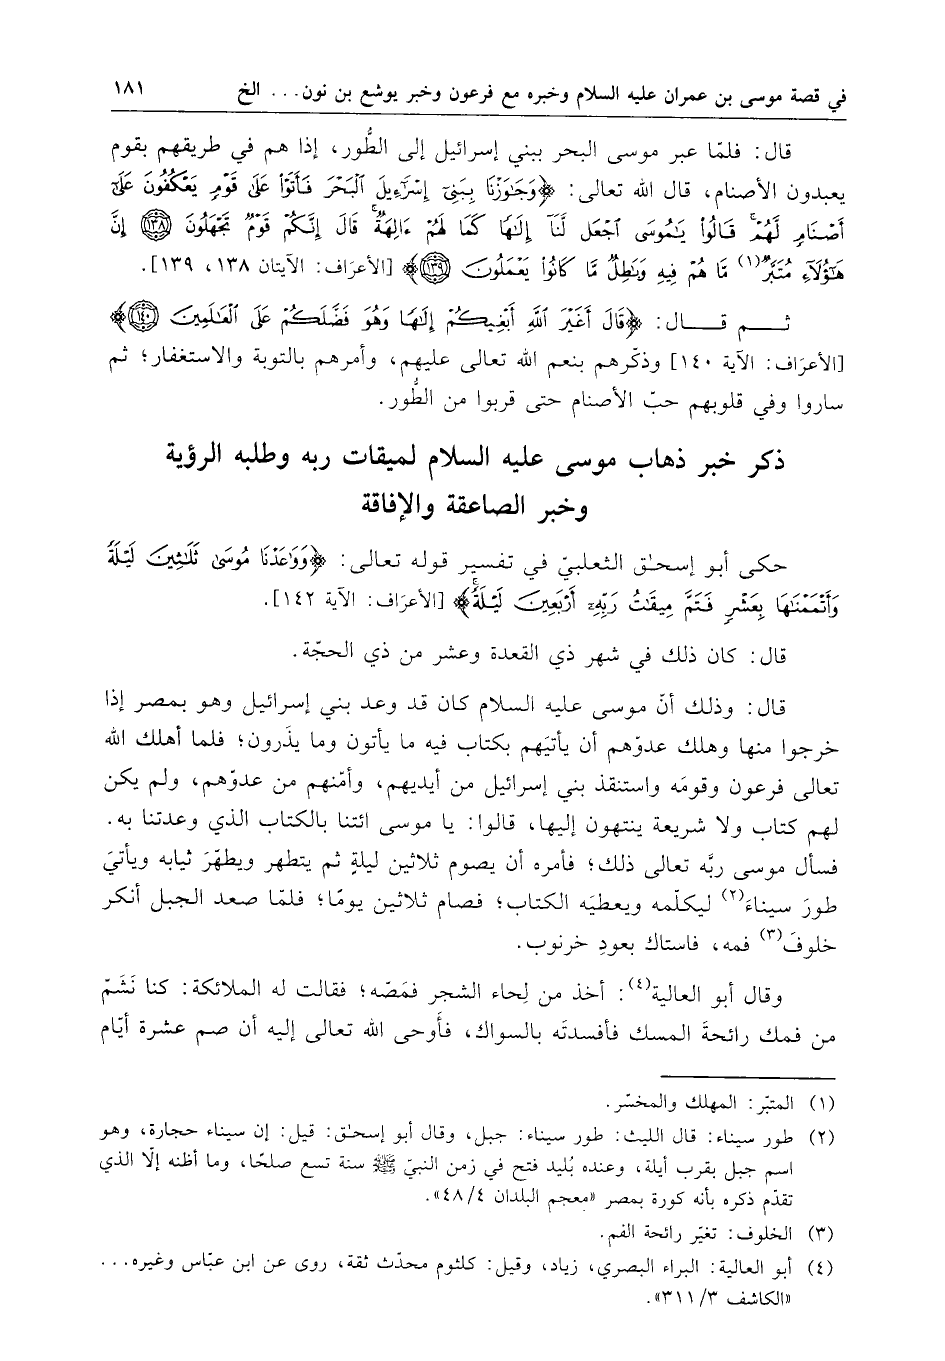 في قصة موسى بن عمران عليه السلام وخبره مع فرعون وخبر يوشع بن نون... الخ ١٨١
قال: فلمّا عبر موسى البحر ببني إسرائيل إلى الطُّور، إذا هم في طريقهم بقوم
يعبدون الأصنام، قال الله تعالى: ﴿وَجَٰوَزْنَا بِبَنِيٓ إِسْرَٰٓءِيلَ ٱلْبَحْرَ فَأَتَوْا۟ عَلَىٰ قَوْمٍ يَعْكُفُونَ عَلَىٰٓ
أَصْنَامٍ لَّهُمْ ۚ قَالُوا۟ يَٰمُوسَى ٱجْعَل لَّنَآ إِلَٰهًا كَمَا لَهُمْ ءَالِهَةٌ ۚ قَالَ إِنَّكُمْ قَوْمٌ تَجْهَلُونَ ﴿١٣٨﴾ إِنَّ
هَٰٓؤُلَآءِ مُتَبَّرٌ(١) مَّا هُمْ فِيهِ وَبَٰطِلٌ مَّا كَانُوا۟ يَعْمَلُونَ ﴿١٣٩﴾﴾ [الأعرَاف: الآيتان ١٣٨، ١٣٩].
ثـــم قـــال: ﴿قَالَ أَغَيْرَ ٱللَّهِ أَبْغِيكُمْ إِلَٰهًا وَهُوَ فَضَّلَكُمْ عَلَى ٱلْعَٰلَمِينَ ﴿١٤٠﴾﴾
[الأعرَاف: الآية ١٤٠] وذكّرهم بنعم الله تعالى عليهم، وأمرهم بالتوبة والاستغفار؛ ثم
ساروا وفي قلوبهم حبّ الأصنام حتى قربوا من الطُّور.
ذكر خبر ذهاب موسى عليه السلام لميقات ربه وطلبه الرؤية
وخبر الصاعقة والإفاقة
حكى أبو إسحٰق الثعلبيّ في تفسير قوله تعالى: ﴿وَوَٰعَدْنَا مُوسَىٰ ثَلَٰثِينَ لَيْلَةً
وَأَتْمَمْنَٰهَا بِعَشْرٍ فَتَمَّ مِيقَٰتُ رَبِّهِۦٓ أَرْبَعِينَ لَيْلَةً ۚ﴾ [الأعرَاف: الآية ١٤٢].
قال: كان ذلك في شهر ذي القعدة وعشر من ذي الحجّة.
قال: وذلك أنّ موسى عليه السلام كان قد وعد بني إسرائيل وهو بمصر إذا
خرجوا منها وهلك عدوّهم أن يأتيَهم بكتاب فيه ما يأتون وما يذَرون؛ فلما أهلك الله
تعالى فرعون وقومَه واستنقذ بني إسرائيل من أيديهم، وأمّنهم من عدوّهم، ولم يكن
لهم كتاب ولا شريعة ينتهون إليها، قالوا: يا موسى ائتنا بالكتاب الذي وعدتنا به.
فسأل موسى ربَّه تعالى ذلك؛ فأمره أن يصوم ثلاثين ليلةٍ ثم يتطهر ويطهّرَ ثيابه ويأتيَ
طورَ سيناءَ(٢) ليكلّمه ويعطيَه الكتاب؛ فصام ثلاثين يومًا؛ فلمّا صعد الجبل أنكر
خلوفَ(٣) فمه، فاستاك بعودِ خرنوب.
وقال أبو العالية(٤): أخذ من لِحاء الشجر فمَصّه؛ فقالت له الملائكة: كنا نَشَمّ
من فمك رائحةَ المسك فأفسدتَه بالسواك، فأَوحى الله تعالى إليه أن صم عشرة أيّام
(١) المتبّر: المهلك والمخسّر.
(٢) طور سيناء: قال الليث: طور سيناء: جبل، وقال أبو إسحٰق: قيل: إن سيناء حجارة، وهو
اسم جبل بقرب أيلة، وعنده بُليد فتح في زمن النبيّ ﷺ سنة تسع صلحًا، وما أظنه إلّا الذي
تقدّم ذكره بأنه كورة بمصر «معجم البلدان ٤٨/٤».
(٣) الخلوف: تغيّر رائحة الفم.
(٤) أبو العالية: البراء البصري، زياد، وقيل: كلثوم محدّث ثقة، روى عن ابن عبّاس وغيره...
«الكاشف ٣١١/٣».